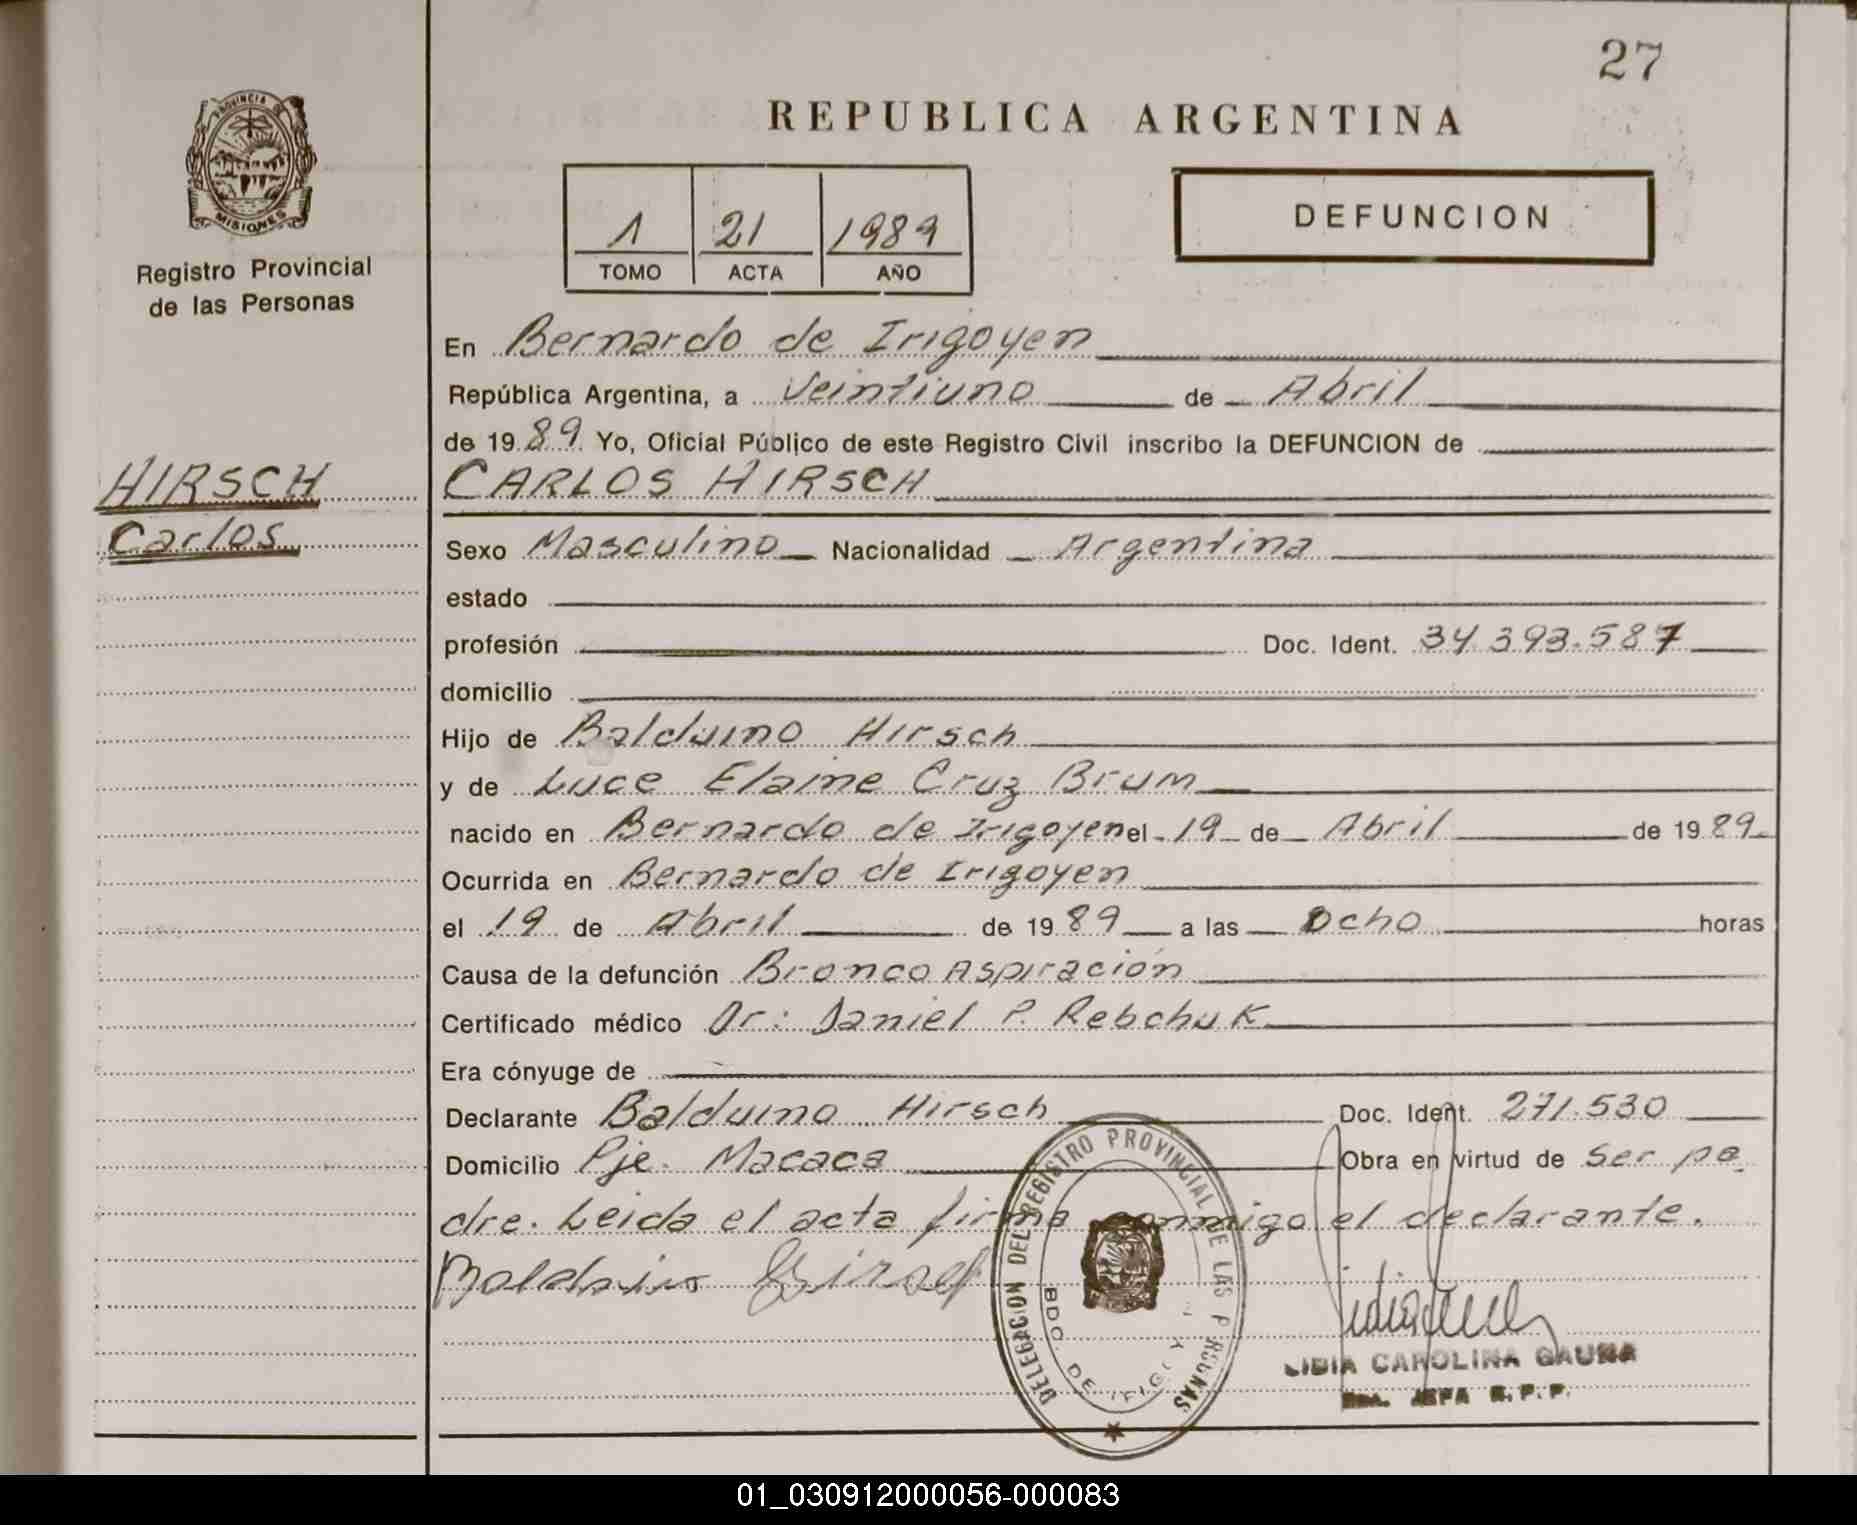 27
PROVINCIA DE
MISIONES
Registro Provincial
de las Personas
REPUBLICA ARGENTINA
1 21 1989
TOMO ACTA AÑO
DEFUNCION
En Bernardo de Irigoyen
República Argentina, a Veintiuno de Abril
de 1989 Yo, Oficial Público de este Registro Civil inscribo la DEFUNCION de
HIRSCH
Carlos
CARLOS HIRSCH
Sexo Masculino Nacionalidad Argentina
estado
profesión Doc. Ident. 34.393.587
domicilio
Hijo de Balduino Hirsch
y de Luce Elaine Cruz Brum
nacido en Bernardo de Irigoyen el 19 de Abril de 1989
Ocurrida en Bernardo de Irigoyen
el 19 de Abril de 1989 a las Ocho horas
Causa de la defunción Bronco Aspiración
Certificado médico Dr: Daniel P. Rebchuk
Era cónyuge de
Declarante Balduino Hirsch Doc. Ident. 271.530
Domicilio Pje. Macaca Obra en virtud de Ser pa
dre. Leida el acta firma conmigo el declarante.
Balduino Hirsch
DELEGACION DEL REGISTRO PROVINCIAL DE LAS PERSONAS
BDO. DE IRIGOY
LIDIA CAROLINA GAUNA
JEFA R.P.P.
01_030912000056-000083